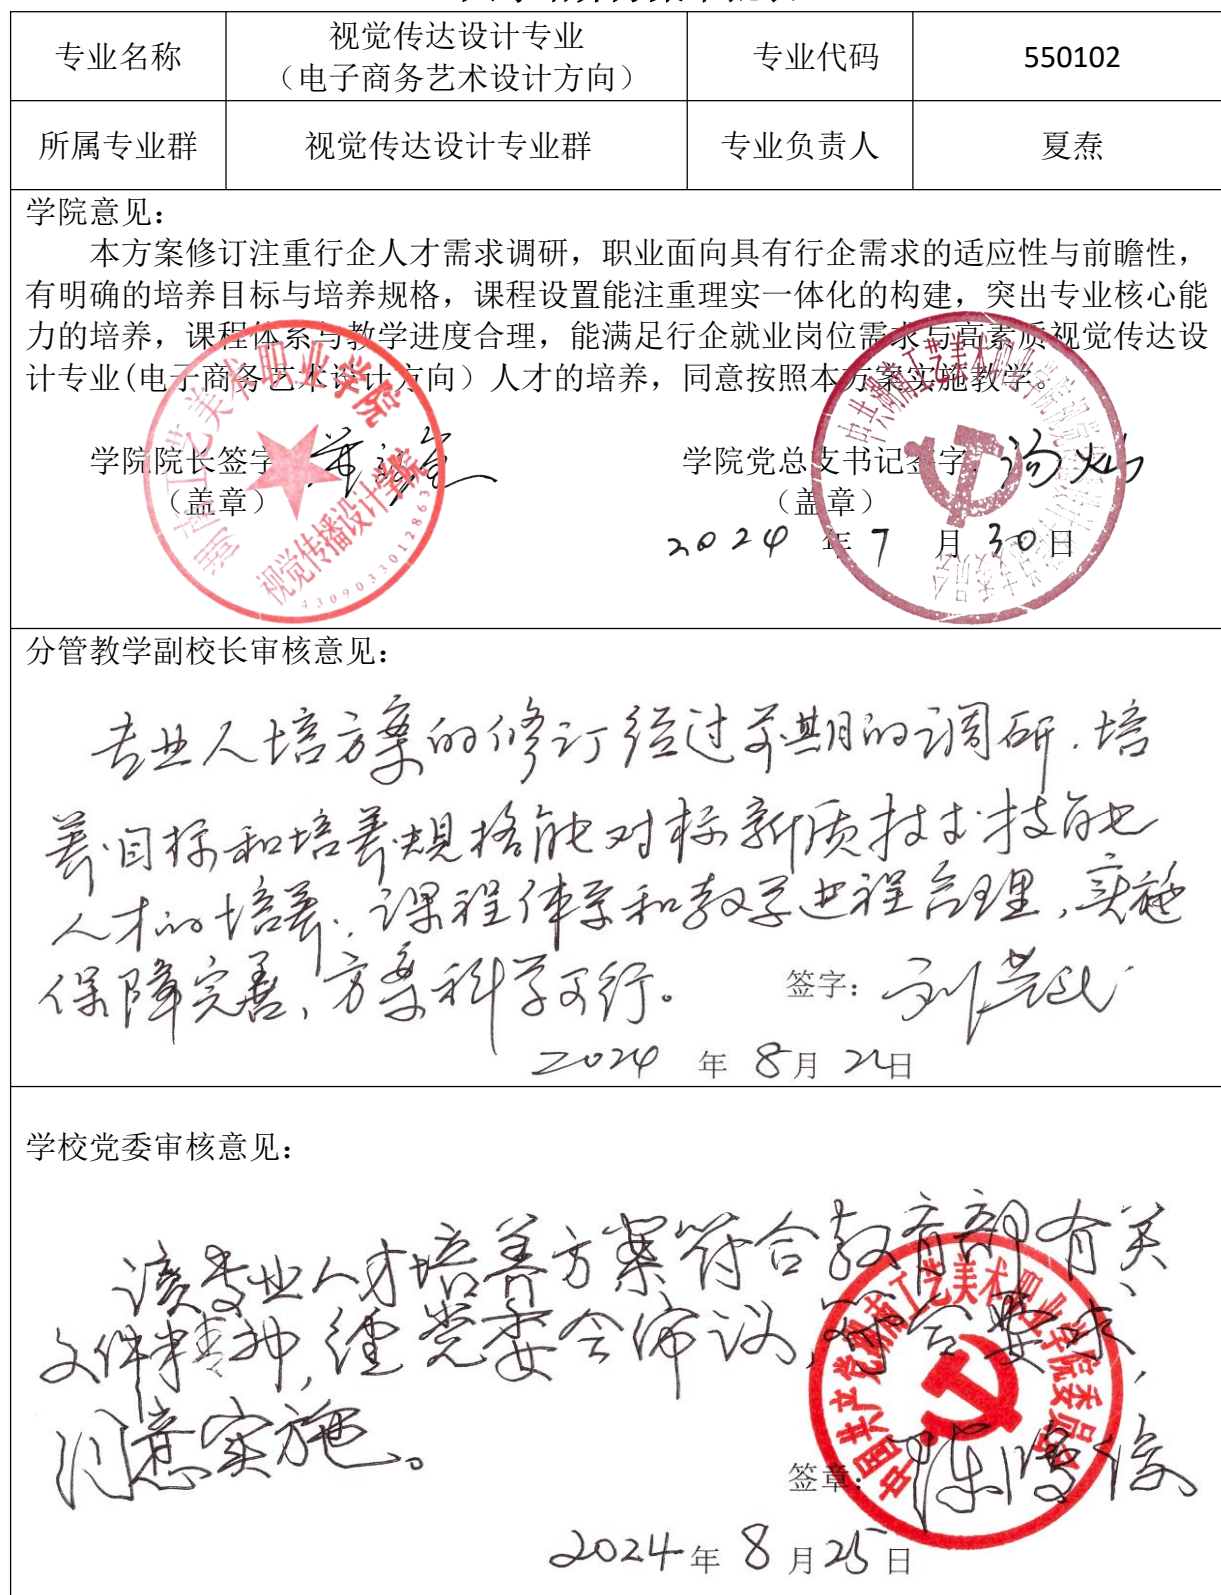 专业名称
视觉传达设计专业
（电子商务艺术设计方向）
专业代码
550102
所属专业群
视觉传达设计专业群
专业负责人
夏焘
学院意见：
本方案修订注重行企人才需求调研，职业面向具有行企需求的适应性与前瞻性，
有明确的培养目标与培养规格，课程设置能注重理实一体化的构建，突出专业核心能
力的培养，课程体系与教学进度合理，能满足行企就业岗位需求与高素质视觉传达设
计专业(电子商务艺术设计方向）人才的培养，同意按照本方案实施教学。
湖南工艺美术职业学院
视觉传播设计学院
4309033012863
学院院长签字
（盖章）
学院党总支书记签字：汤灿
（盖章）
2024 年 7 月 30 日
分管教学副校长审核意见：
专业人培方案的修订经过前期的调研，培
养目标和培养规格能对标新质技术技能
人才的培养，课程体系和教学进程合理，实施
保障完善，方案科学可行。
签字：
2024 年 8月 22日
学校党委审核意见：
该专业人才培养方案符合教育部有关
文件精神，经党委会审议，符合要求，
同意实施。
中国共产党湖南工艺美术职业学院委员会
签章：
2024年 8 月25日